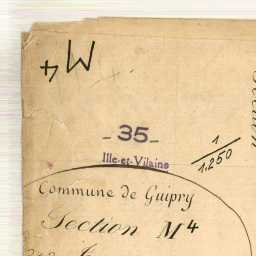 M4
- 35 -
Ille-et-Vilaine
1
1.250
Section
Commune de Guipry
Section M4